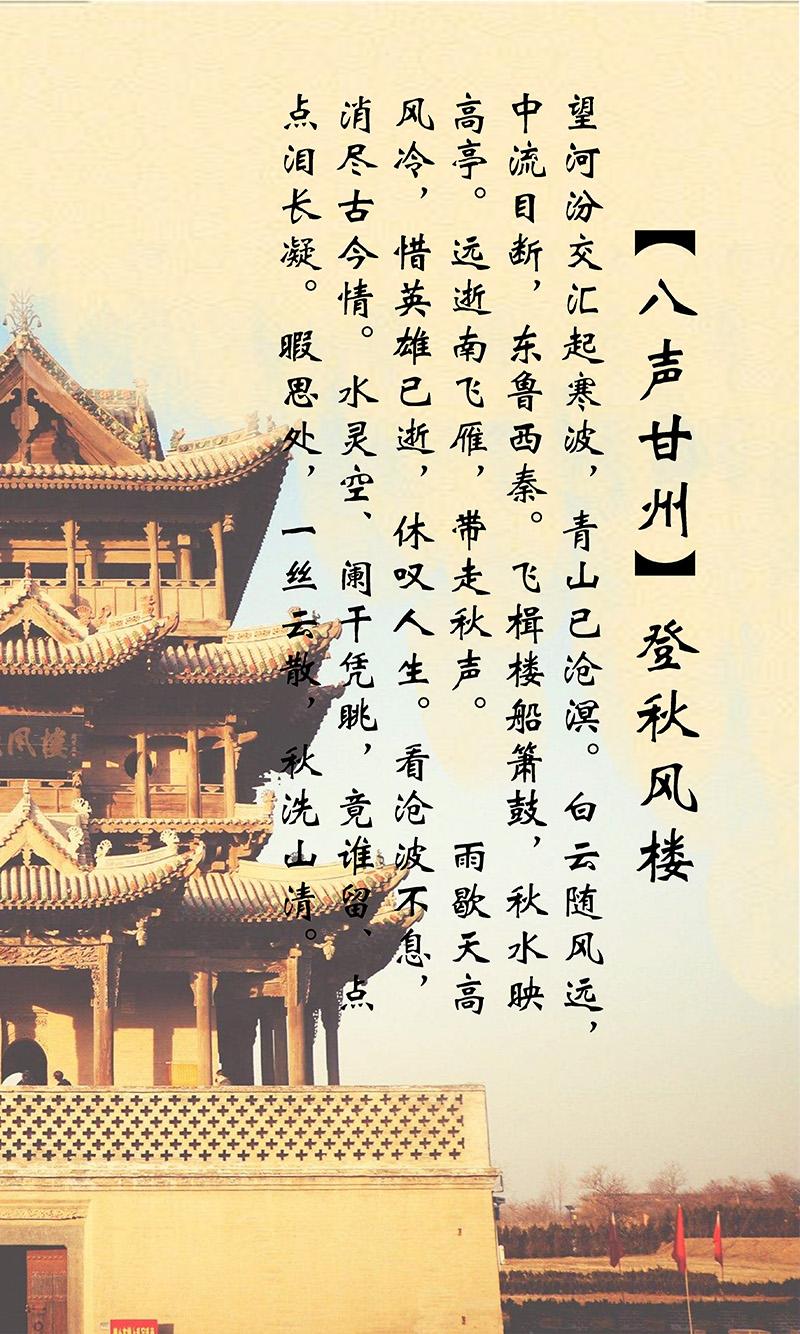 【八声甘州】登秋风楼
望河汾交汇起寒波，青山已沧溟。白云随风远，
中流目断，东鲁西秦。飞楫楼船箫鼓，秋水映
高亭。远逝南飞雁，带走秋声。 雨歇天高
风冷，惜英雄已逝，休叹人生。看沧波不息，
消尽古今情。水灵空、阑干凭眺，竟谁留、点
点泪长凝。暇思处，一丝云散，秋洗山清。
风楼